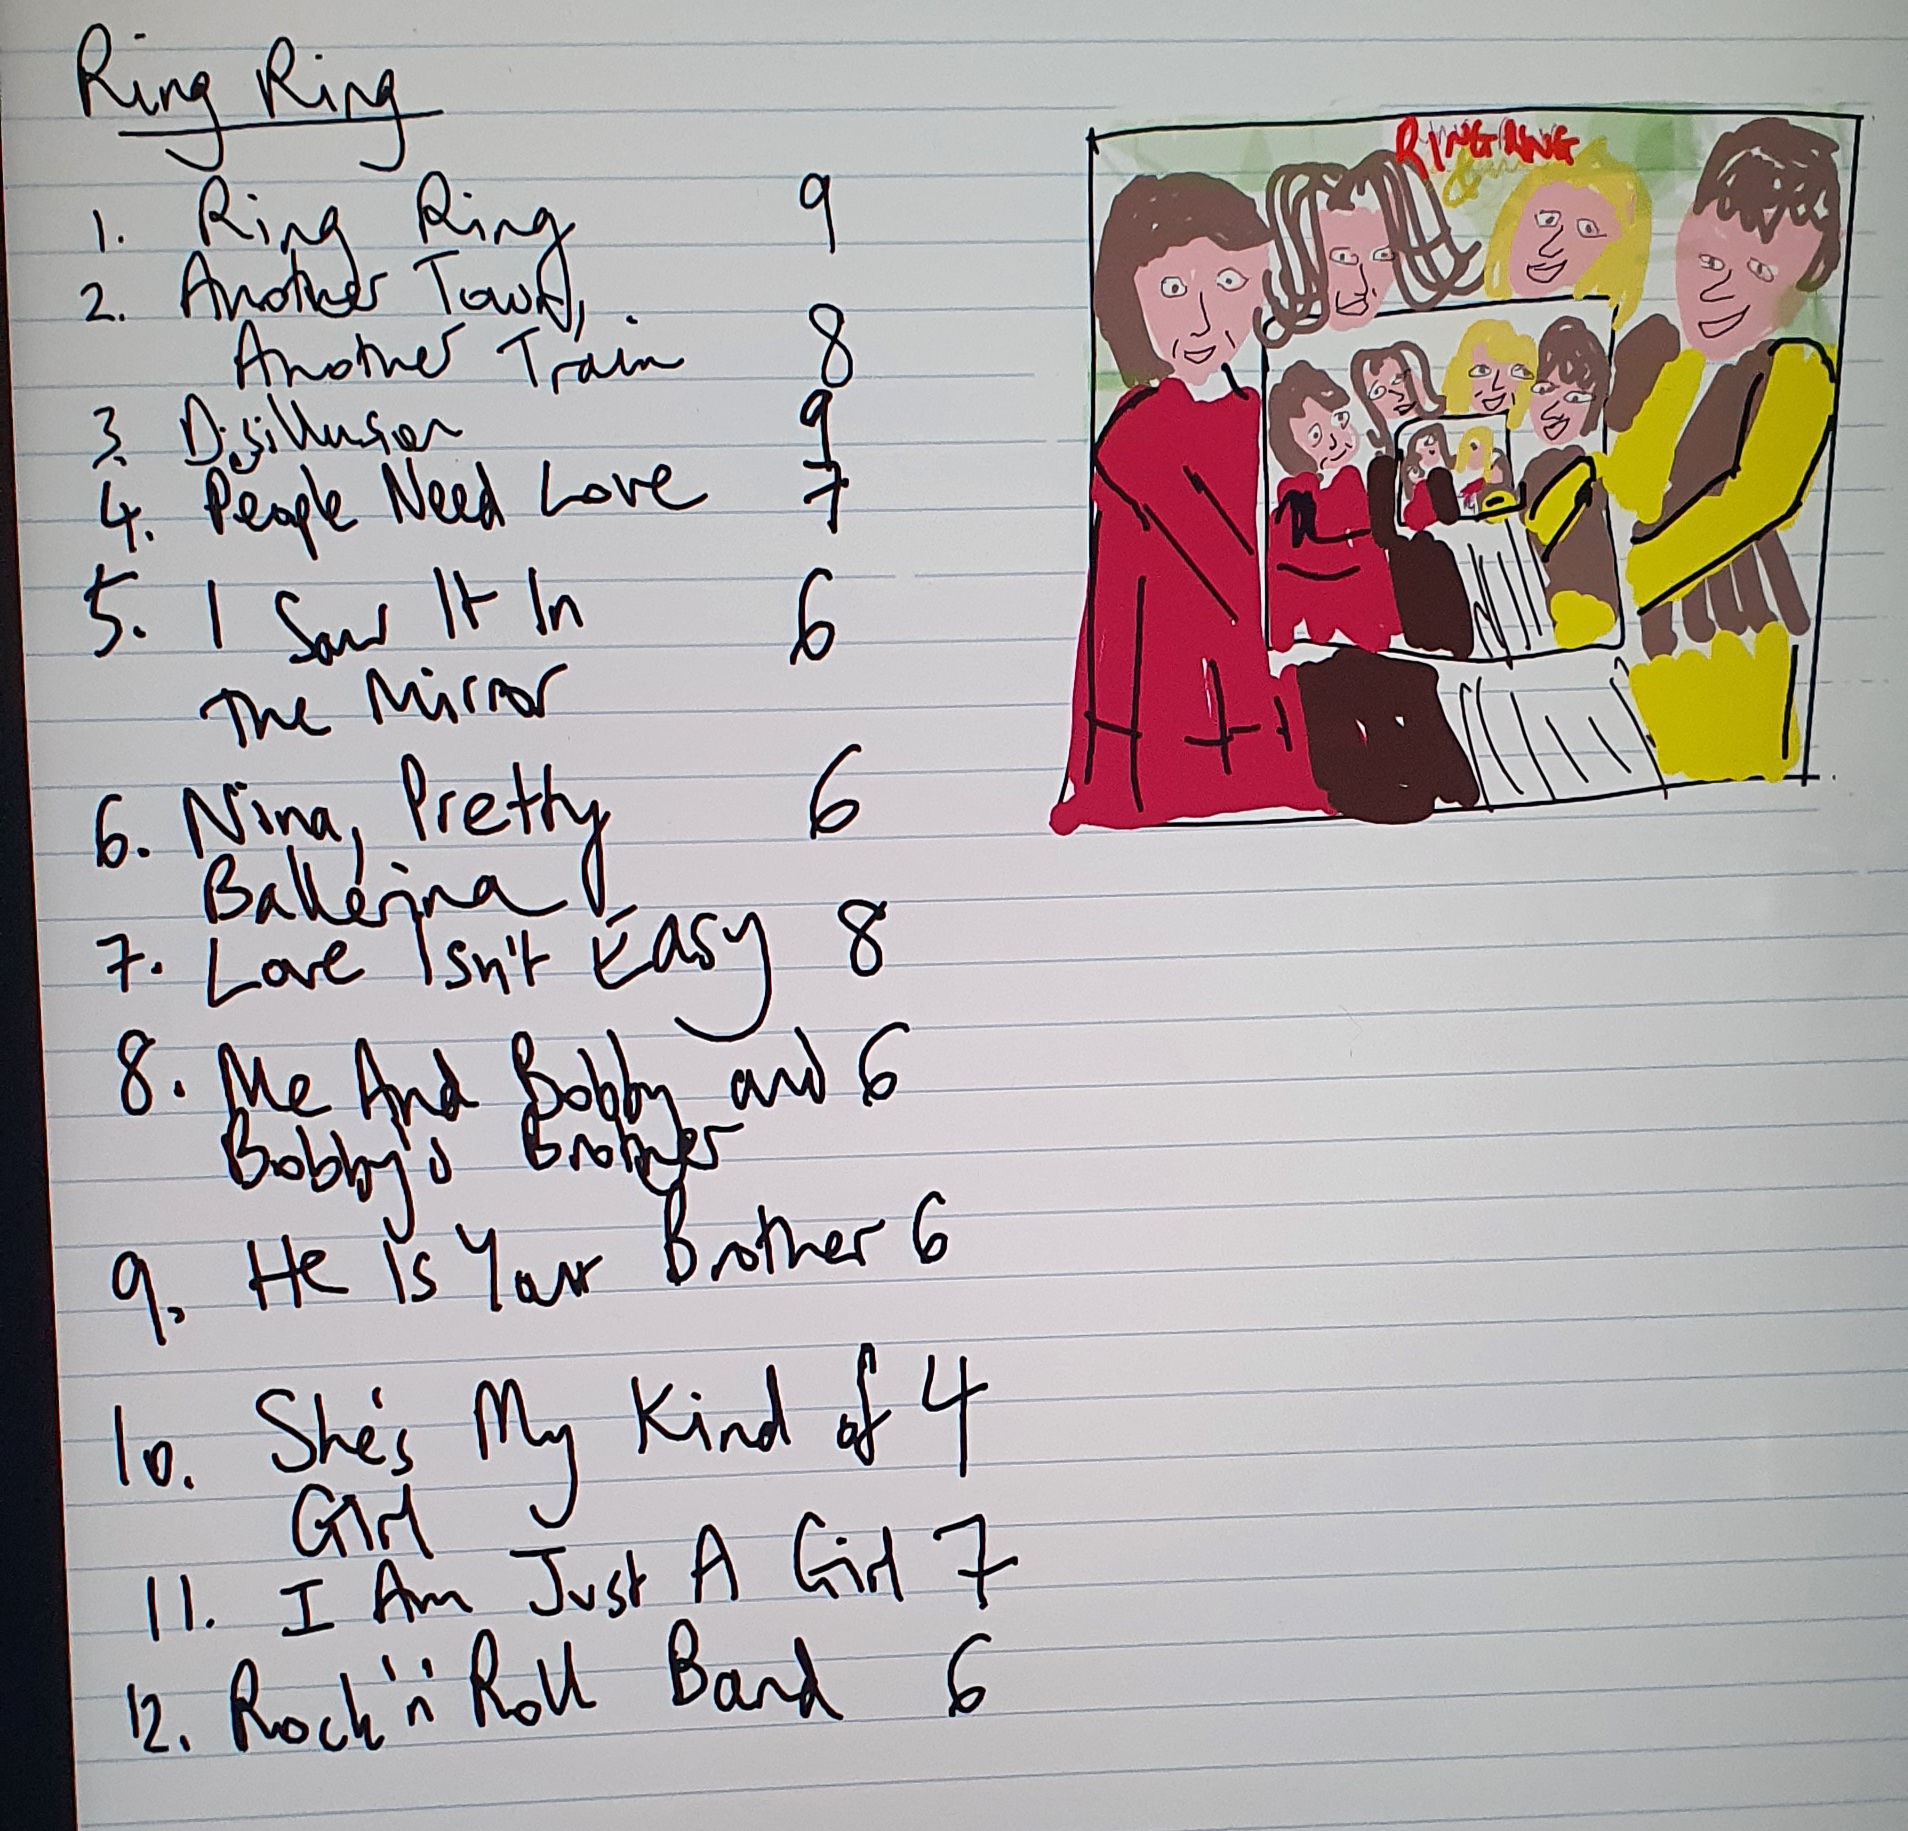 Ring Ring
1. Ring Ring 9
2. Another Town,
Another Train 8
3. Disillusion 9
4. People Need Love 7
5. I Saw It In 6
The Mirror
6. Nina, Pretty 6
Ballerina
7. Love Isn't Easy 8
8. Me And Bobby and 6
Bobby's Brother
9. He Is Your Brother 6
10. She's My Kind of 4
Girl
11. I Am Just A Girl 7
12. Rock 'n' Roll Band 6
RING RING